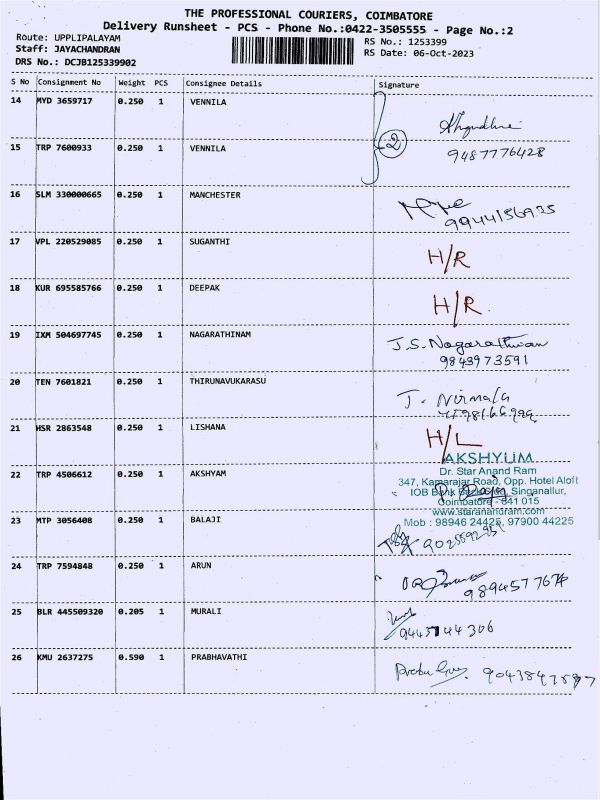 THE PROFESSIONAL COURIERS, COIMBATORE
Delivery Runsheet - PCS - Phone No.:0422-3505555 - Page No.:2
Route: UPPLIPALAYAM
Staff: JAYACHANDRAN
DRS No.: DCJB125339902
RS No.: 1253399
RS Date: 06-Oct-2023
S No Consignment No Weight PCS Consignee Details Signature
14 MYD 3659717 0.250 1 VENNILA
2
15 TRP 7600933 0.250 1 VENNILA
9487776428
16 SLM 330000665 0.250 1 MANCHESTER
9944156935
17 VPL 220529085 0.250 1 SUGANTHI H/R
18 KUR 695585766 0.250 1 DEEPAK H/R
19 IXM 504697745 0.250 1 NAGARATHINAM J.S. Nagarathinam
9843973591
20 TEN 7601821 0.250 1 THIRUNAVUKARASU J. Nirmala
21 HSR 2863548 0.250 1 LISHANA H/L
AKSHYUM
Dr. Star Anand Ram
22 TRP 4506612 0.250 1 AKSHYAM
347, Kamarajar Road, Opp. Hotel Aloft
IOB Bank Singanallur,
Coimbatore - 641 015
www.staranandram.com
23 MTP 3056408 0.250 1 BALAJI
Mob : 98946 24425, 97900 44225
24 TRP 7594848 0.250 1 ARUN
25 BLR 445509320 0.205 1 MURALI
26 KMU 2637275 0.590 1 PRABHAVATHI